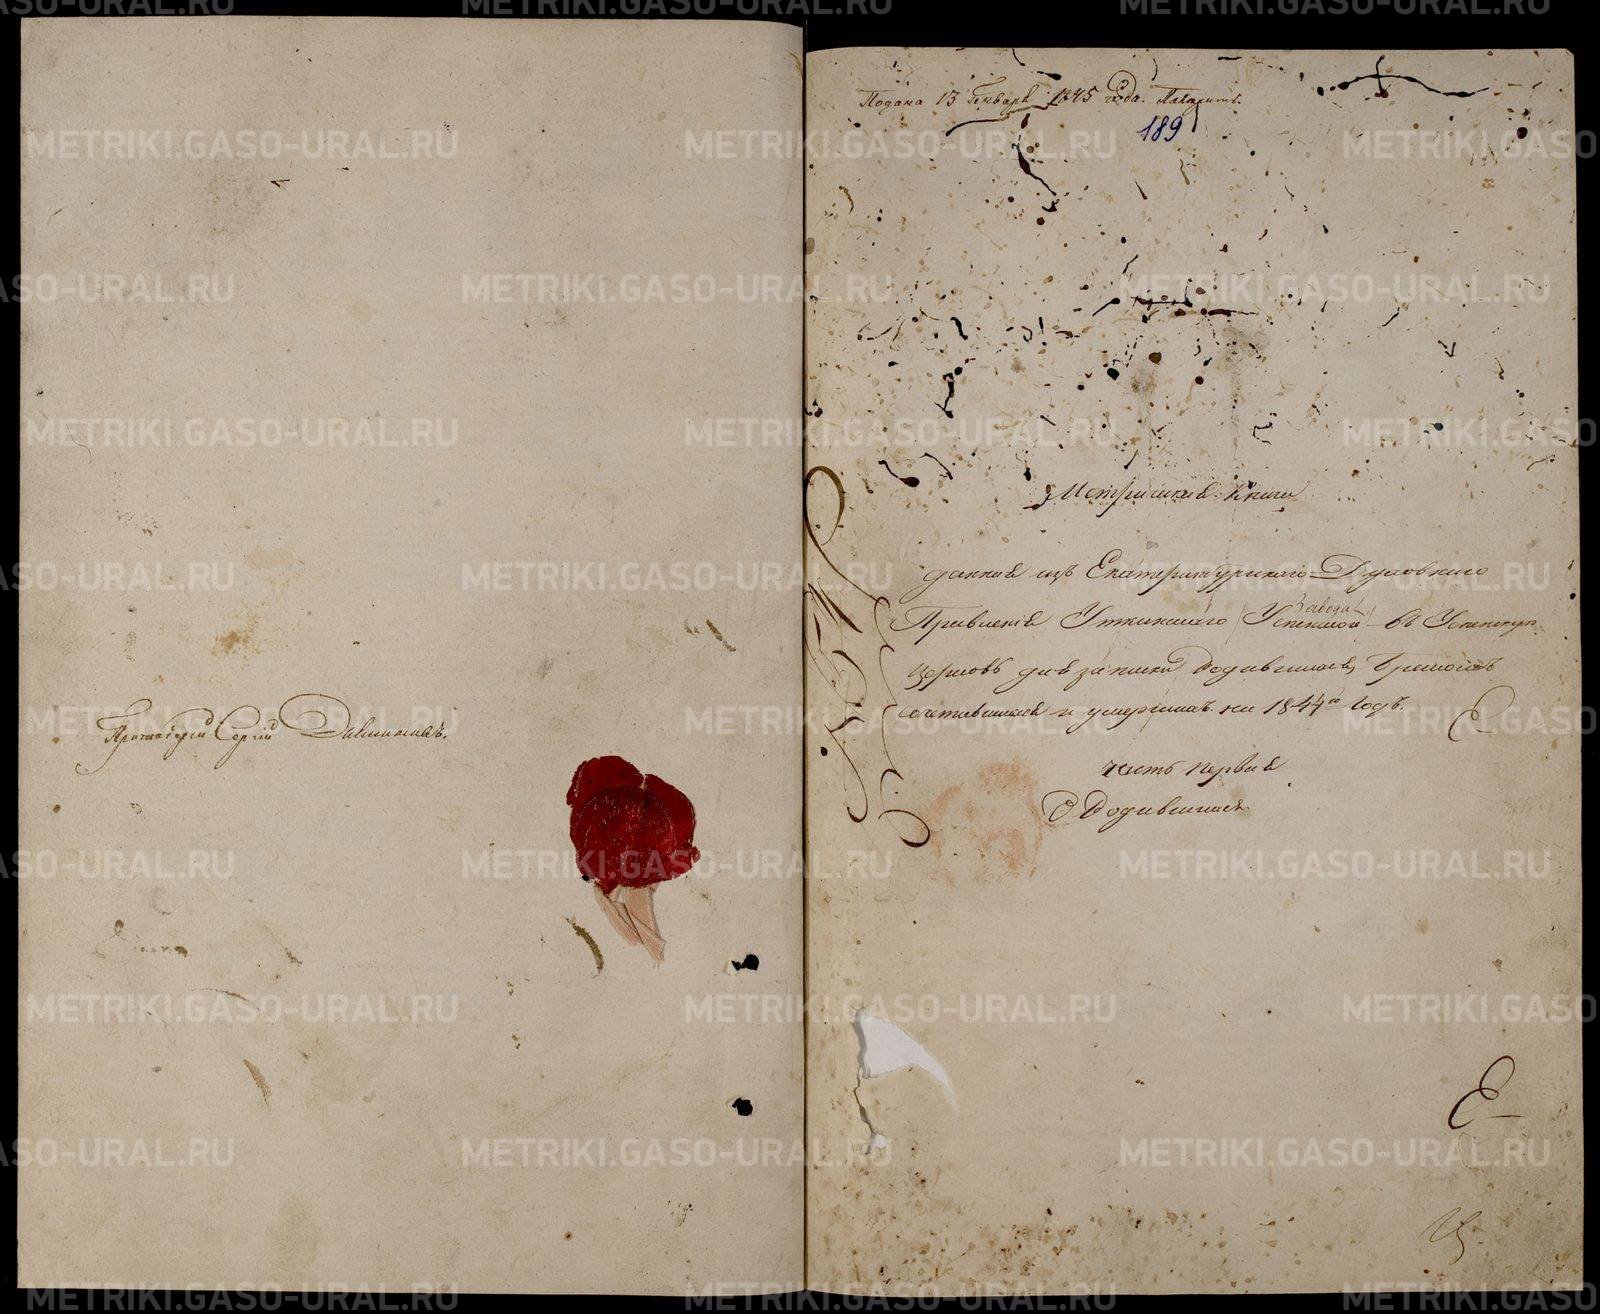 Протоіерей Сергій
Подана 13 Генваря 1845 года.
189
Метрическая Книга
данная изъ Екатеринбургскаго Духовнаго
Завода
Правленія Уткинскаго Успенскаго въ Успенскую
церковь для записки Родившихся, Бракомъ
сочетавшихся и умершихъ на 1844й годъ.
часть первая
О Родившихся
METRIKI.GASO-URAL.RU